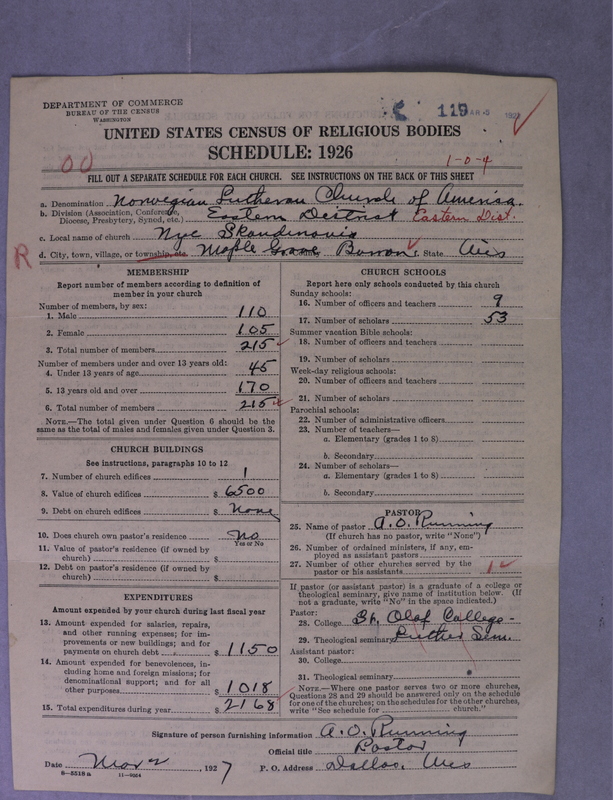 DEPARTMENT OF COMMERCE
BUREAU OF THE CENSUS
WASHINGTON
119
UNITED STATES CENSUS OF RELIGIOUS BODIES
SCHEDULE: 1926
00
1-0-4
FILL OUT A SEPARATE SCHEDULE FOR EACH CHURCH. SEE INSTRUCTIONS ON THE BACK OF THIS SHEET
a. Denomination Norwegian Lutheran Church of America.
b. Division (Association, Conference, Diocese, Presbytery, Synod, etc.) Eastern District Eastern Dist.
c. Local name of church Nye Skandinavia
R d. City, town, village, or township, etc. Maple Grove Barron State Wis
MEMBERSHIP
Report number of members according to definition of
member in your church
Number of members, by sex:
1. Male 110
2. Female 105
3. Total number of members 215
Number of members under and over 13 years old:
4. Under 13 years of age 45
5. 13 years old and over 170
6. Total number of members 215
NOTE.—The total given under Question 6 should be
the same as the total of males and females given under Question 3.
CHURCH BUILDINGS
See instructions, paragraphs 10 to 12
7. Number of church edifices 1
8. Value of church edifices $ 6500
9. Debt on church edifices $ None
10. Does church own pastor's residence No
Yes or No
11. Value of pastor's residence (if owned by
church) $
12. Debt on pastor's residence (if owned by
church) $
EXPENDITURES
Amount expended by your church during last fiscal year
13. Amount expended for salaries, repairs,
and other running expenses; for im-
provements or new buildings; and for
payments on church debt $ 1150
14. Amount expended for benevolences, in-
cluding home and foreign missions; for
denominational support; and for all
other purposes $ 1018
15. Total expenditures during year $ 2168
CHURCH SCHOOLS
Report here only schools conducted by this church
Sunday schools:
16. Number of officers and teachers 9
17. Number of scholars 53
Summer vacation Bible schools:
18. Number of officers and teachers
19. Number of scholars
Week-day religious schools:
20. Number of officers and teachers
21. Number of scholars
Parochial schools:
22. Number of administrative officers
23. Number of teachers—
a. Elementary (grades 1 to 8)
b. Secondary
24. Number of scholars—
a. Elementary (grades 1 to 8)
b. Secondary
PASTOR
25. Name of pastor A. O. Running
(If church has no pastor, write "None")
26. Number of ordained ministers, if any, em-
ployed as assistant pastors
27. Number of other churches served by the
pastor or his assistants 1
If pastor (or assistant pastor) is a graduate of a college or
theological seminary, give name of institution below. (If
not a graduate, write "No" in the space indicated.)
Pastor:
28. College St. Olaf College-
29. Theological seminary Luther Sem.
Assistant pastor:
30. College
31. Theological seminary
NOTE.—Where one pastor serves two or more churches,
Questions 28 and 29 should be answered only on the schedule
for one of the churches; on the schedules for the other churches,
write "See schedule for church."
Signature of person furnishing information A. O. Running
Official title Pastor
Date Mar 2, 1927 P. O. Address Dallas, Wis
8-5518 a 11-9264